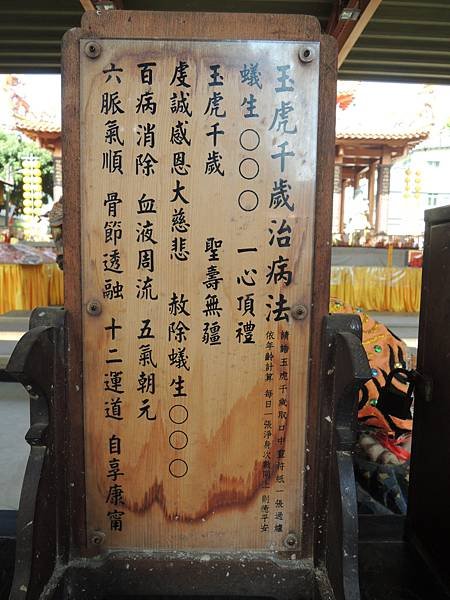 玉虎千歲治病法
請龉玉虎千歲取口中靈符紙一張過爐
依年齡計算 每日一張淨身次數同上 則癒平安
蟻生○○○ 一心頂禮
玉虎千歲 聖壽無疆
虔誠感恩大慈悲 赦除蟻生○○○
百病消除 血液周流 五氣朝元
六脈氣順 骨節透融 十二運道 自享康甯